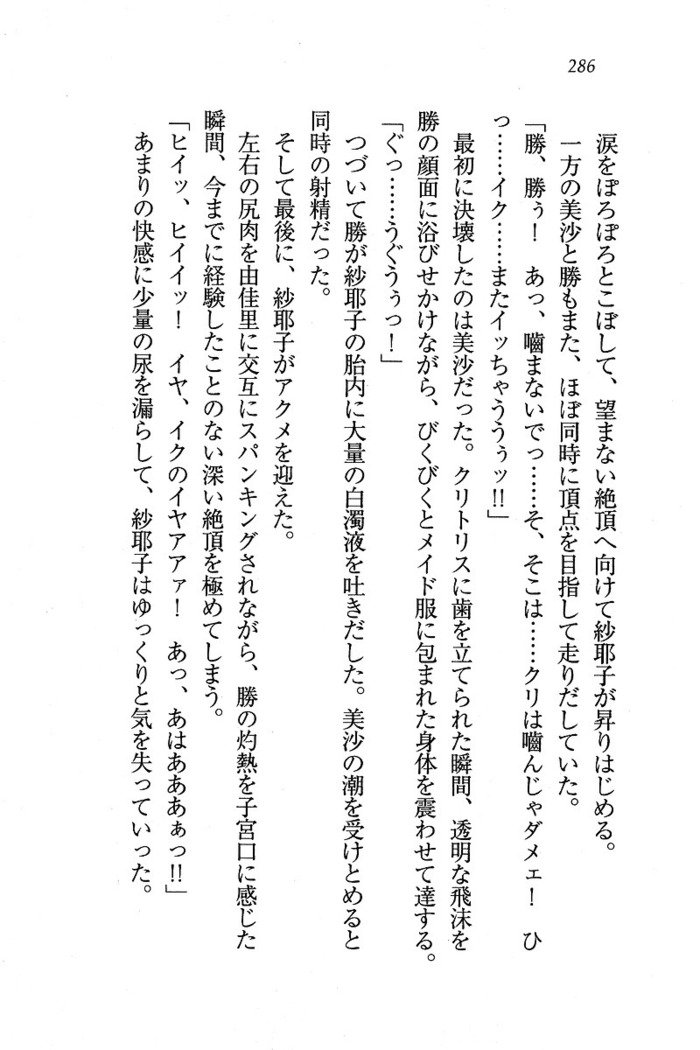 286
涙をぽろぽろとこぼして、望まない絶頂へ向けて紗耶子が昇りはじめる。
一方の美沙と勝もまた、ほぼ同時に頂点を目指して走りだしていた。
「勝、勝ぅ！　あっ、嚙まないでっ……そ、そこは……クリは嚙んじゃダメェ！　ひ
っ……イク……またイッちゃううぅッ!!」
最初に決壊したのは美沙だった。クリトリスに歯を立てられた瞬間、透明な飛沫を
勝の顔面に浴びせかけながら、びくびくとメイド服に包まれた身体を震わせて達する。
「ぐっ……うぐうぅっ！」
つづいて勝が紗耶子の胎内に大量の白濁液を吐きだした。美沙の潮を受けとめると
同時の射精だった。
そして最後に、紗耶子がアクメを迎えた。
左右の尻肉を由佳里に交互にスパンキングされながら、勝の灼熱を子宮口に感じた
瞬間、今までに経験したことのない深い絶頂を極めてしまう。
「ヒイッ、ヒイイッ！　イヤ、イクのイヤアアァ！　あっ、あはあああぁっ!!」
あまりの快感に少量の尿を漏らして、紗耶子はゆっくりと気を失っていった。